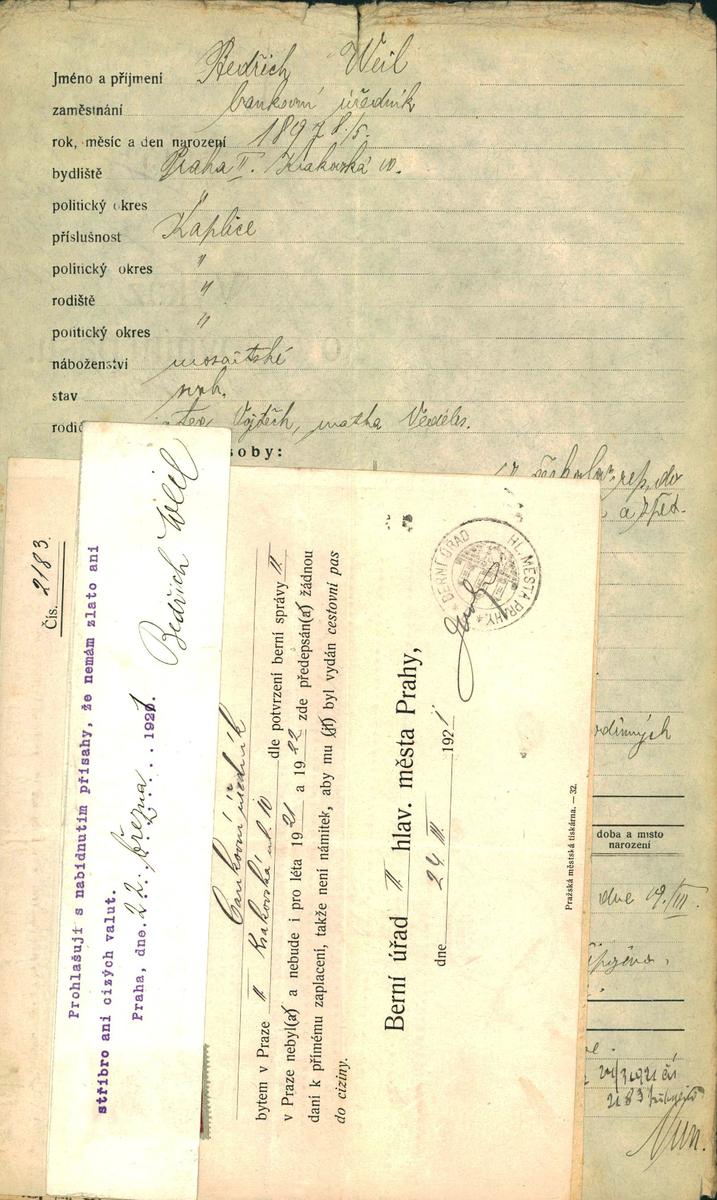 Jméno a příjmení Bedřich Weil
zaměstnání bankovní úředník
rok, měsíc a den narození 1897 8./5.
bydliště Praha II. Krakovská 10.
politický okres "
příslušnost Kaplice
politický okres "
rodiště "
politický okres "
náboženství mosaitské
stav svob.
rodič Vojtěch, matka
soby:
rep. do
a zpět.
odinných
doba a misto
narození
dne 19./III.
2183
Čís. 2183.
Prohlašuji s nabídnutím přísahy, že nemám zlato ani
stříbro ani cizých valut.
Praha, dne. 22. března . . . 1921.
Bedřich Weil
bankovní úředník
bytem v Praze II Krakovská ul. 10 dle potvrzení berní správy II
v Praze nebyl(a) a nebude i pro léta 1921 a 1922 zde předepsán(a) žádnou
daní k přímému zaplacení, takže není námitek, aby mu (jí) byl vydán cestovní pas
do ciziny.
Berní úřad II hlav. města Prahy,
dne 24 III. 1921
* BERNÍ ÚŘAD HL. MĚSTA PRAHY *
Pražská městská tiskárna. — 32.